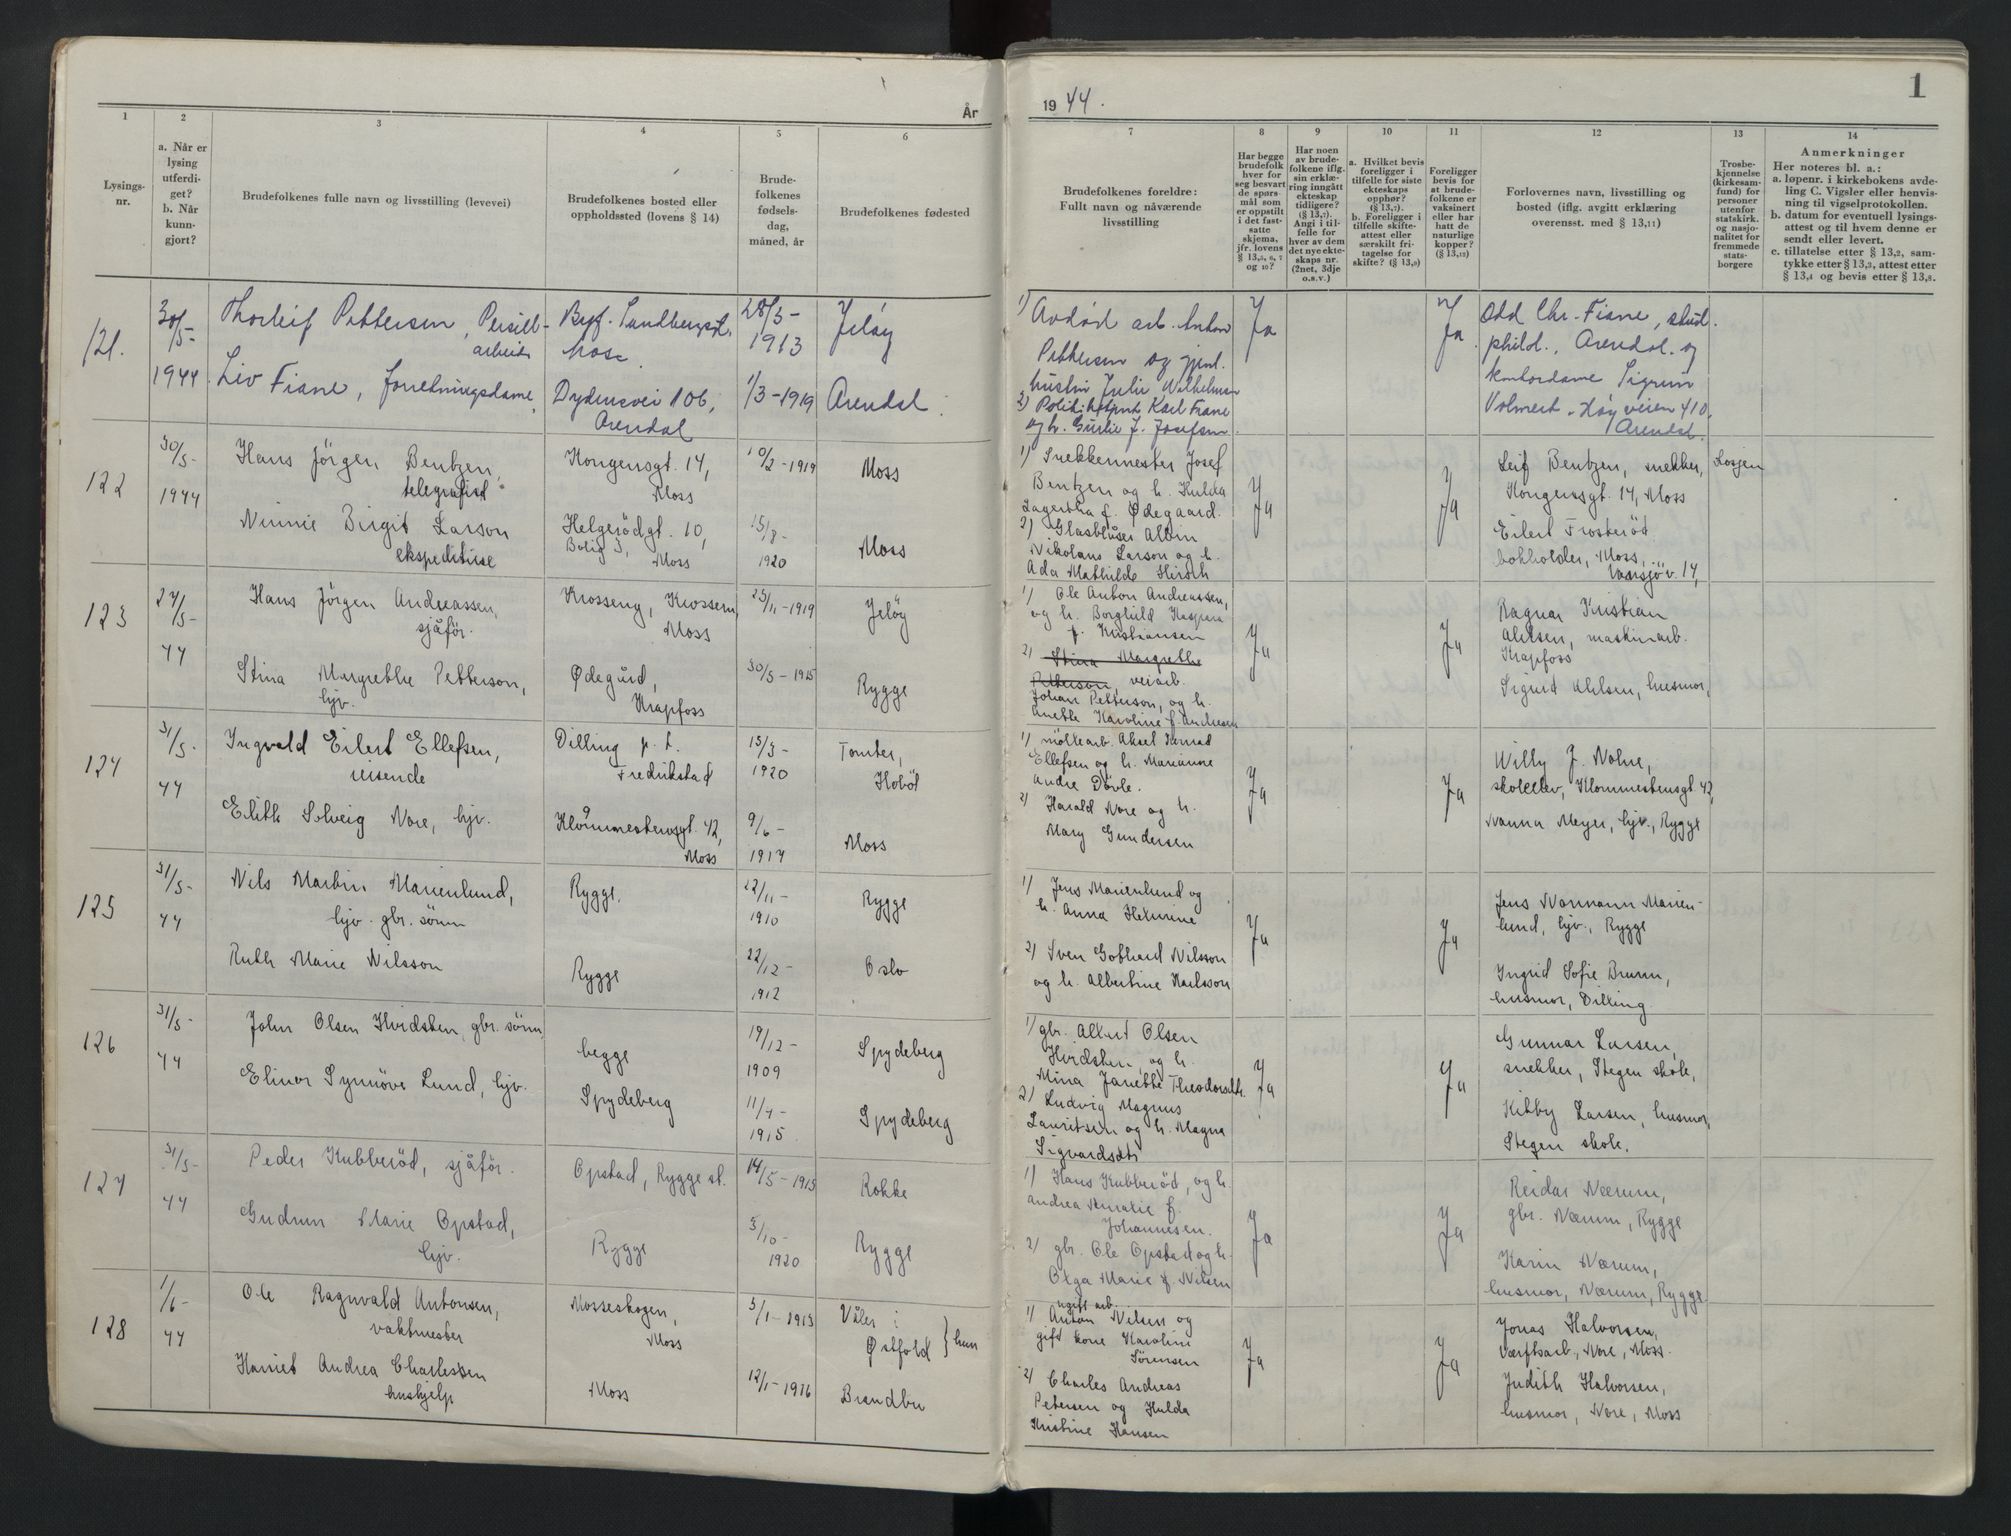 År
1
2
3
4
5
6
Lysings-
nr.
a. Når er
lysing
utferdi-
get?
b. Når
kunn-
gjort?
Brudefolkenes fulle navn og livsstilling (levevei)
Brudefolkenes bosted eller
oppholdssted (lovens § 14)
Brude-
folkenes
fødsels-
dag,
måned, år
Brudefolkenes fødested
121.
30/5-
1944
Thorleif Pettersen, Persill-
arbeider
Byf. Sundbergsh.
Moss
28/3-
1913
Jeløy
Liv Fiane, forretningsdame,
Dydensvei 106,
Arendal
1/3-1919
Arendal.
122
30/5-
1944
Hans Jörgen Bentzen,
telegrafist
Kongensgt. 14,
Moss
10/2-1919
Moss
Ninnie Birgit Larson
ekspeditrise
Helgerödgt. 10,
Bolig 3,
Moss
15/8-
1920
Moss
123
27/5-
44
Hans Jörgen Andreassen,
sjåför.
Krosseng, Krossern,
Moss
25/11-1919
Jelöy
Stina Margrethe Petterson,
hjv.
Ødegård,
Krapfoss
30/5-1915
Rygge
124
31/5-
44
Ingvald Eilert Ellefsen,
reisende
Dilling p. t.
Fredrikstad
15/3-
1920
Tomter,
Hoböl
Edith Solveig Nore, hjv.
Klommestensgt. 42,
Moss
9/6-
1917
Moss
125
31/5-
44
Nils Martin Marienlund,
hjv. gbr. sönn
Rygge.
22/11-
1910
Rygge
Ruth Marie Nilsson
Rygge
22/12-
1912
Oslo
126
31/5-
44
John Olsen Hvidsten, gbr. sönn,
begge
19/12-
1909
Spydeberg
Elinor Synnöve Lund, hjv.
Spydeberg
11/7-
1915
Spydeberg
127
31/5-
44
Peder Kubberöd, sjåför.
Opstad, Rygge st.
14/5-1915
Rokke
Gudrun Marie Opstad,
hjv.
Rygge
5/10-
1920
Rygge
128
1/6-
44
Ole Ragnvald Antonsen,
vaktmester
Mosseskogen,
Moss
5/1-1913
Våler i
Østfold } hun
Harriet Andrea Charlessen
hushjelp
Moss
12/1-1916
Brandbu
1
1944.
7
8
9
10
11
12
13
14
Brudefolkenes foreldre:
Fullt navn og nåværende
livsstilling
Har begge
brudefolk
hver for
seg besvart
de spørs-
mål som
er oppstilt
i det fast-
satte
skjema,
jfr. lovens
§ 13,5, 6, 7
og 10?
Har noen
av brude-
folkene iflg.
sin erklæ-
ring inngått
ekteskap
tidligere?
(§ 13,7).
Angi i til-
felle for
hver av dem
det nye ekte-
skaps nr.
(2net, 3dje
o.s.v.)
a. Hvilket bevis
foreligger i
tilfelle for siste
ekteskaps
opphør?
(§ 13,7).
b. Foreligger i
tilfelle skifte-
attest eller
særskilt fri-
tagelse for
skifte? (§ 13,9)
Foreligger
bevis for
at brude-
folkene er
vaksinert
eller har
hatt de
naturlige
kopper?
(§ 13,12)
Forlovernes navn, livsstilling og
bosted (iflg. avgitt erklæring
overensst. med § 13,11)
Trosbe-
kjennelse
(kirkesam-
fund) for
personer
utenfor
statskirk.
og nasjo-
nalitet for
fremmede
stats-
borgere
Anmerkninger
Her noteres bl. a.:
a. løpenr. i kirkebokens avde-
ling C. Vigsler eller henvis-
ning til vigselprotokollen.
b. datum for eventuell lysings-
attest og til hvem denne er
sendt eller levert.
c. tillatelse etter § 13,2, sam-
tykke etter § 13,3, attest etter
§ 13,4 og bevis etter § 13,8.
1) Avdød arb. Anton
Pettersen og gjenl.
hustru Julie Wilhelmsen
2) Politibetjent Karl Fiane
og h. Gurlie J. Josefsen.
Ja
Ja
Odd Chr. Fiane, stud.
philol., Arendal. og
kontordame Sigrun
Volmert. Høyveien 410.
Arendal.
1) Snekkermester Josef
Bentzen og h. Hulda
Lagertha f. Ødegaard.
2) Glasblåser Albin
Nikolaus Larson og h.
Ada Mathilde Hirsch
Ja
Ja
Leif Bentzen, snekker,
Kongensgt. 14, Moss
Eilert Frosteröd
bokholder, Moss,
Vansjöv. 14,
Losjen
1) Ole Anton Andreassen,
og h. Borghild Kaspara
f. Kristiansen
2) Stina Margrethe
Petterson, veiarb.
Johan Petterson, og h.
Anette Karoline f. Andresen
Ja
Ja
Ragnar Kristian
Ahlsen, maskinarb.
Krapfoss
Sigrid Ahlsen, husmor,
1) möllearb. Aksel Konrad
Ellefsen og h. Marianne
Andrea Dövle.
2) Harald Nore og h.
Mary Gundersen
Ja
Ja
Willy J. Nohre,
skoleelev, Klommestensgt. 42,
Nanna Meyer, hjv., Rygge
1) Jens Marienlund og
h. Anna Helmine
2) Sven Gothard Nilsson
og h. Albertine Karlsson
Ja
Ja
Jens Normann Marien-
lund, hjv., Rygge
Ingrid Sofie Bruun,
husmor, Dilling.
1) gbr. Albert Olsen
Hvidsten, og h.
Mina Janette Theodorsdtr.
2) Ludvig Magnus
Lauritsen og h. Magna
Sigvardsdtr
Ja
Ja
Gunnar Larsen,
snekker, Stegen skole,
Kitty Larsen, husmor,
Stegen skole.
1) Hans Kubberöd, og h.
Andrea Amalie f.
Johannesen.
2) gbr. Ole Opstad og h.
Olga Marie f. Nilsen
Ja
Ja
Reidar Nærum,
gbr. Nærum, Rygge
Karin Nærum,
husmor, Nærum, Rygge
ugift arb.
1) Anton Nilsen og
gift kone Karoline
Sörensen
2) Charles Andreas
Petersen og Hulda
Kristine Hansen
Ja
Ja
Jonas Halvorsen,
Værftsarb., Nore, Moss.
Judith Halvorsen,
husmor, Nore, Moss